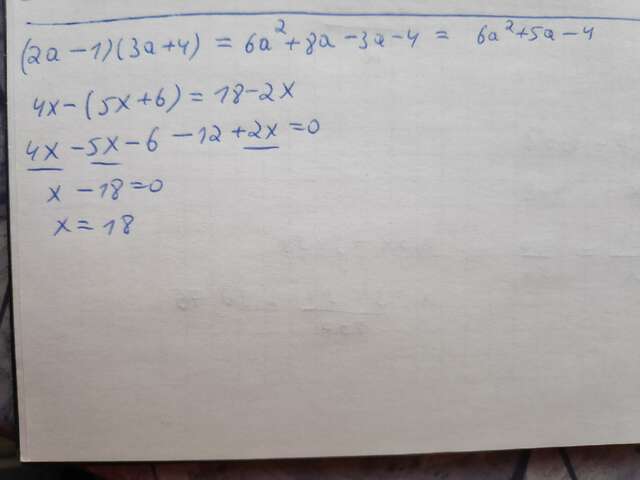 (2a-1)(3a+4) = 6a²+8a-3a-4 = 6a²+5a-4
4x-(5x+6)=18-2x
4x-5x-6-12+2x=0
x-18=0
x=18